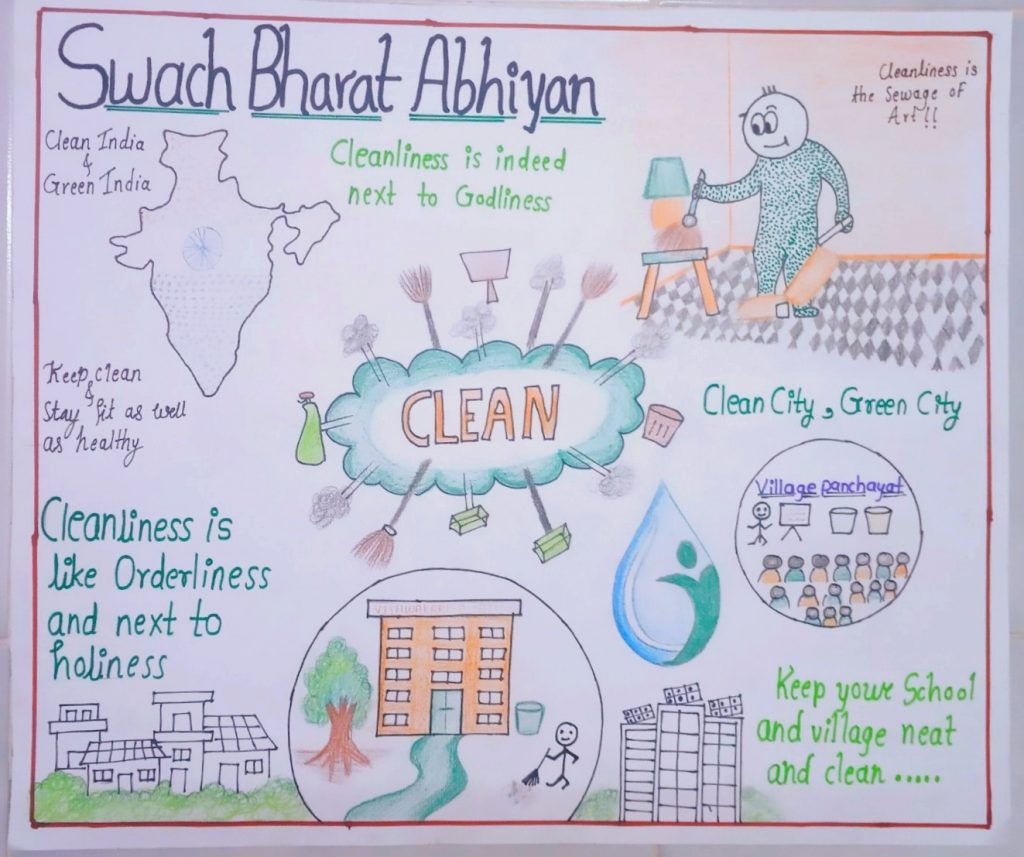 Swach Bharat Abhiyan
Cleanliness is
the Sewage of
Art!!
Clean India
&
Green India
Cleanliness is indeed
next to Godliness
Keep clean
&
Stay fit as well
as healthy
CLEAN
Clean City, Green City
Village panchayat
Cleanliness is
like Orderliness
and next to
holiness
Keep your School
and village neat
and clean .....